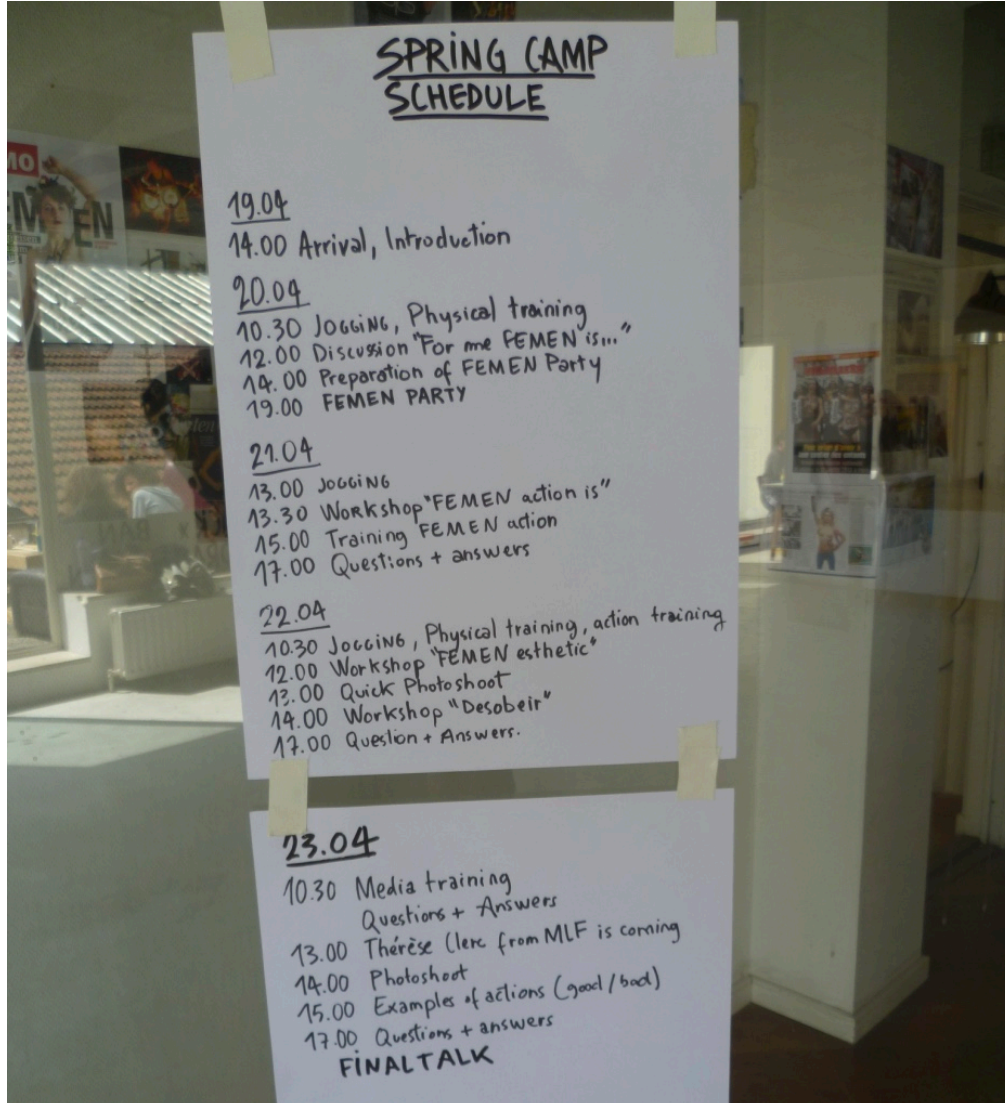 SPRING CAMP
SCHEDULE
19.04
14.00 Arrival, Introduction
20.04
10.30 JOGGING, Physical training
12.00 Discussion "For me FEMEN is..."
14.00 Preparation of FEMEN Party
19.00 FEMEN PARTY
21.04
13.00 JOGGING
13.30 Workshop "FEMEN action is"
15.00 Training FEMEN action
17.00 Questions + answers
22.04
10.30 JOGGING, Physical training, action training
12.00 Workshop "FEMEN esthetic"
13.00 Quick Photoshoot
14.00 Workshop "Desobeir"
17.00 Question + Answers.
23.04
10.30 Media training
Questions + Answers
13.00 Thérèse Clerc from MLF is coming
14.00 Photoshoot
15.00 Examples of actions (good / bad)
17.00 Questions + answers
FINAL TALK